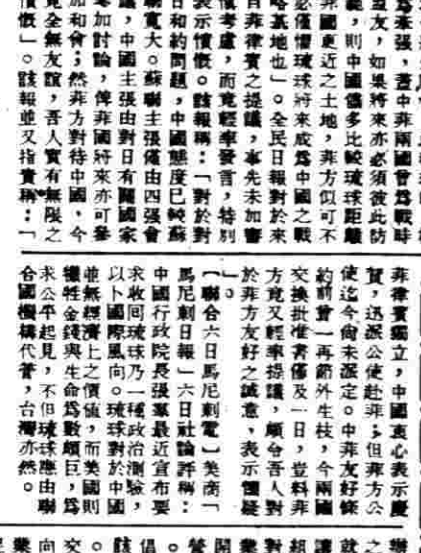 為緊張，蓋中菲兩國曾為戰時
盟友，如果將來亦必須彼此防
，則中國儘多比較琉球距離
菲國更近之土地，菲方似可不
必僅懼琉球將來成為中國之戰
略基地也」。全民日報對於來
自菲律賓之提議，事先未加審
慎考慮，而竟輕率發言，特別
表示憤慨。該報稱：「對於對
日和約問題，中國態度已較蘇
聯寬大。蘇聯主張僅由四強會
議，中國主張由對日有關國家
參加討論，俾菲國將來亦可參
加和會；然菲方對待中國，今
竟全無友誼，吾人實有無限之
憤慨」。該報並又指責稱：「
菲律賓獨立，中國衷心表示慶
賀，迅派公使赴菲；但菲方公
使迄今尚未派定。中菲友好條
約前曾一再節外生枝，今兩國
交換批准書僅及一日，豈料菲
方竟又輕率提議，頗令吾人對
於菲方友好之誠意，表示懷疑
」。
〔聯合六日馬尼剌電〕美商「
馬尼剌日報」六日社論評稱：
中國行政院長張羣最近宣布要
求收回琉球乃一種政治測驗，
以卜國際風向。琉球對於中國
並無經濟上之價值，而美國則
犧牲金錢與生命為數頗巨，為
求公平起見，不但琉球應由聯
合國機構代管，台灣亦然。